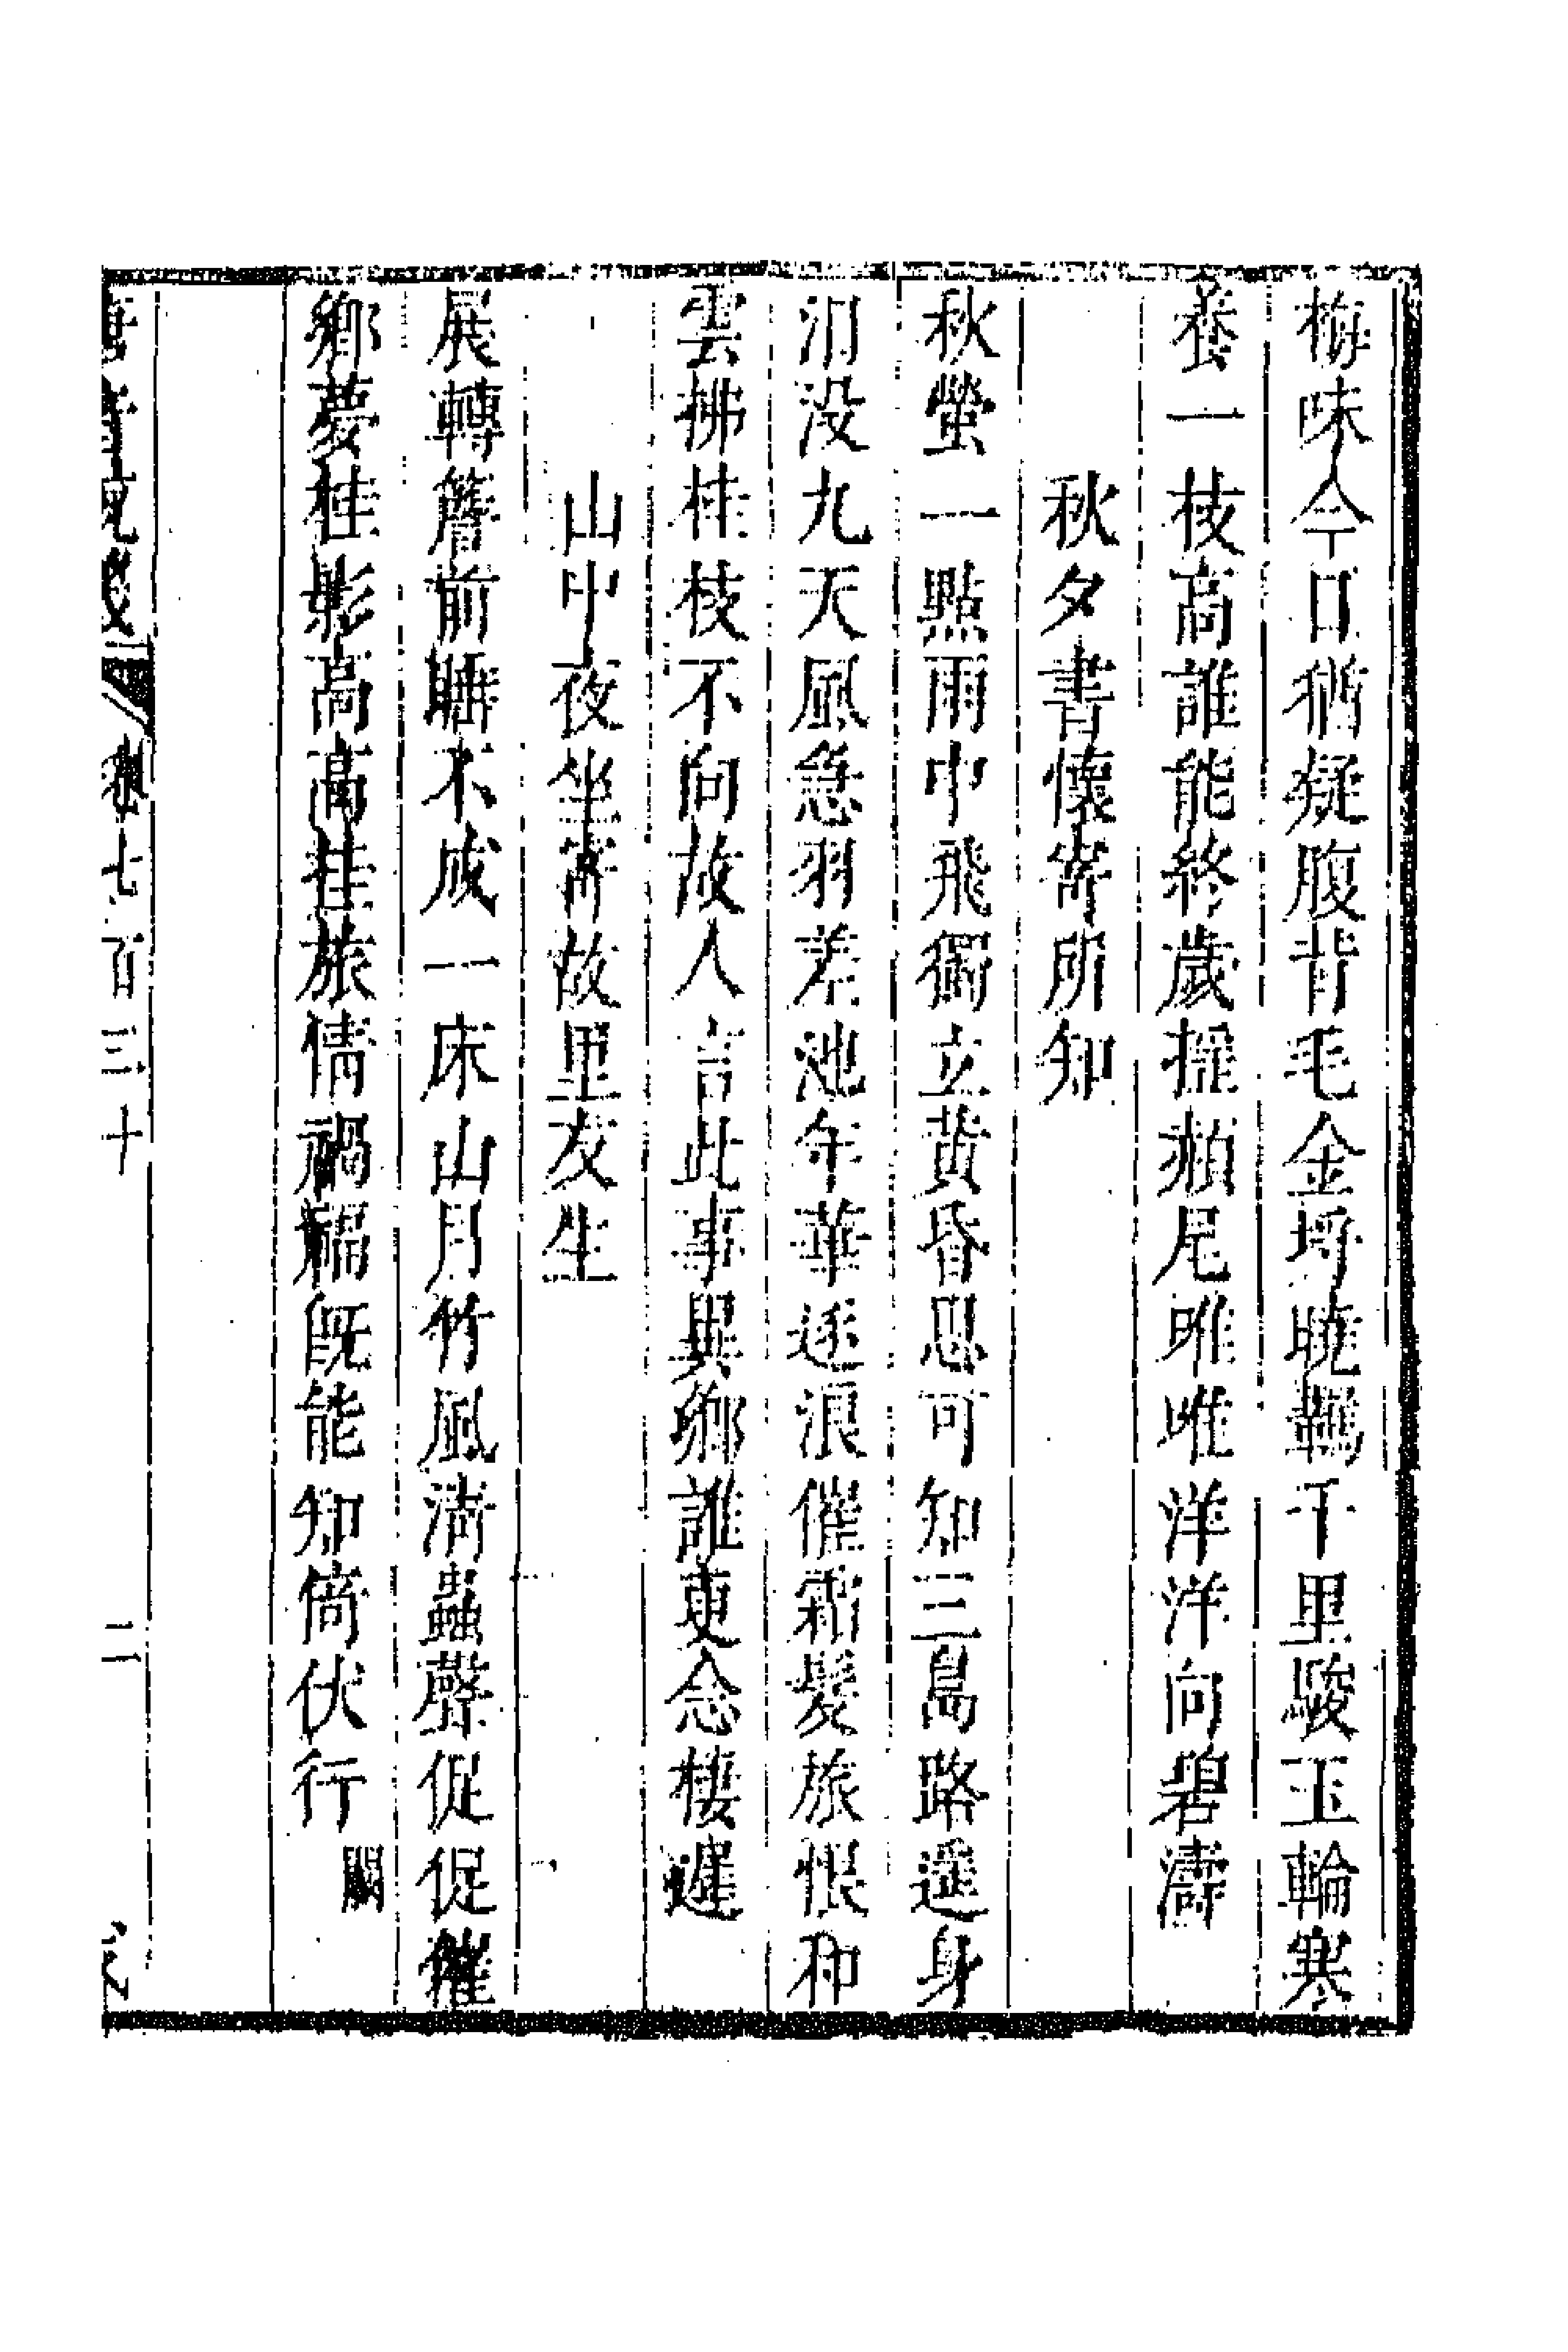 梅味今日猶疑腹背毛金埒曉羈千里駿玉輪寒
養一枝高誰能終歲搖頳尾唯唯洋洋向碧濤
秋夕書懷寄所知
秋螢一點雨中飛獨立黃昏思可知三島路遥身
汨沒九天風急羽差池年華逐浪催霜髮旅恨和
雲拂桂枝不向故人言此事異鄉誰更念棲遲
山中夜坐寄故里友生
展轉簷前睡不成一床山月竹風清蟲聲促促催
鄉夢桂影高高挂旅情禍福既能知倚伏行
闕
卷七百三十
二